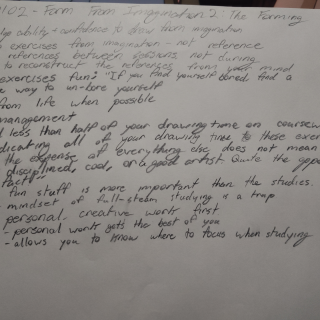 1.02 - Form From Imagination 2: The Forming
ability + confidence to draw from imagination
exercises from imagination - not reference
references between sessions, not during
to reconstruct the references from your mind
exercises fun: "If you find yourself bored, find a
way to un-bore yourself
from life when possible
management
less than half of your drawing time on coursew
dicating all of your drawing time to these exer
the expense of everything else does not mean
disciplined, cool, or a good artist. Quite the oppo
fact
fun stuff is more important than the studies.
mindset of full-steam studying is a trap
personal, creative work first
- personal work gets the best of you
- allows you to know where to focus when studying